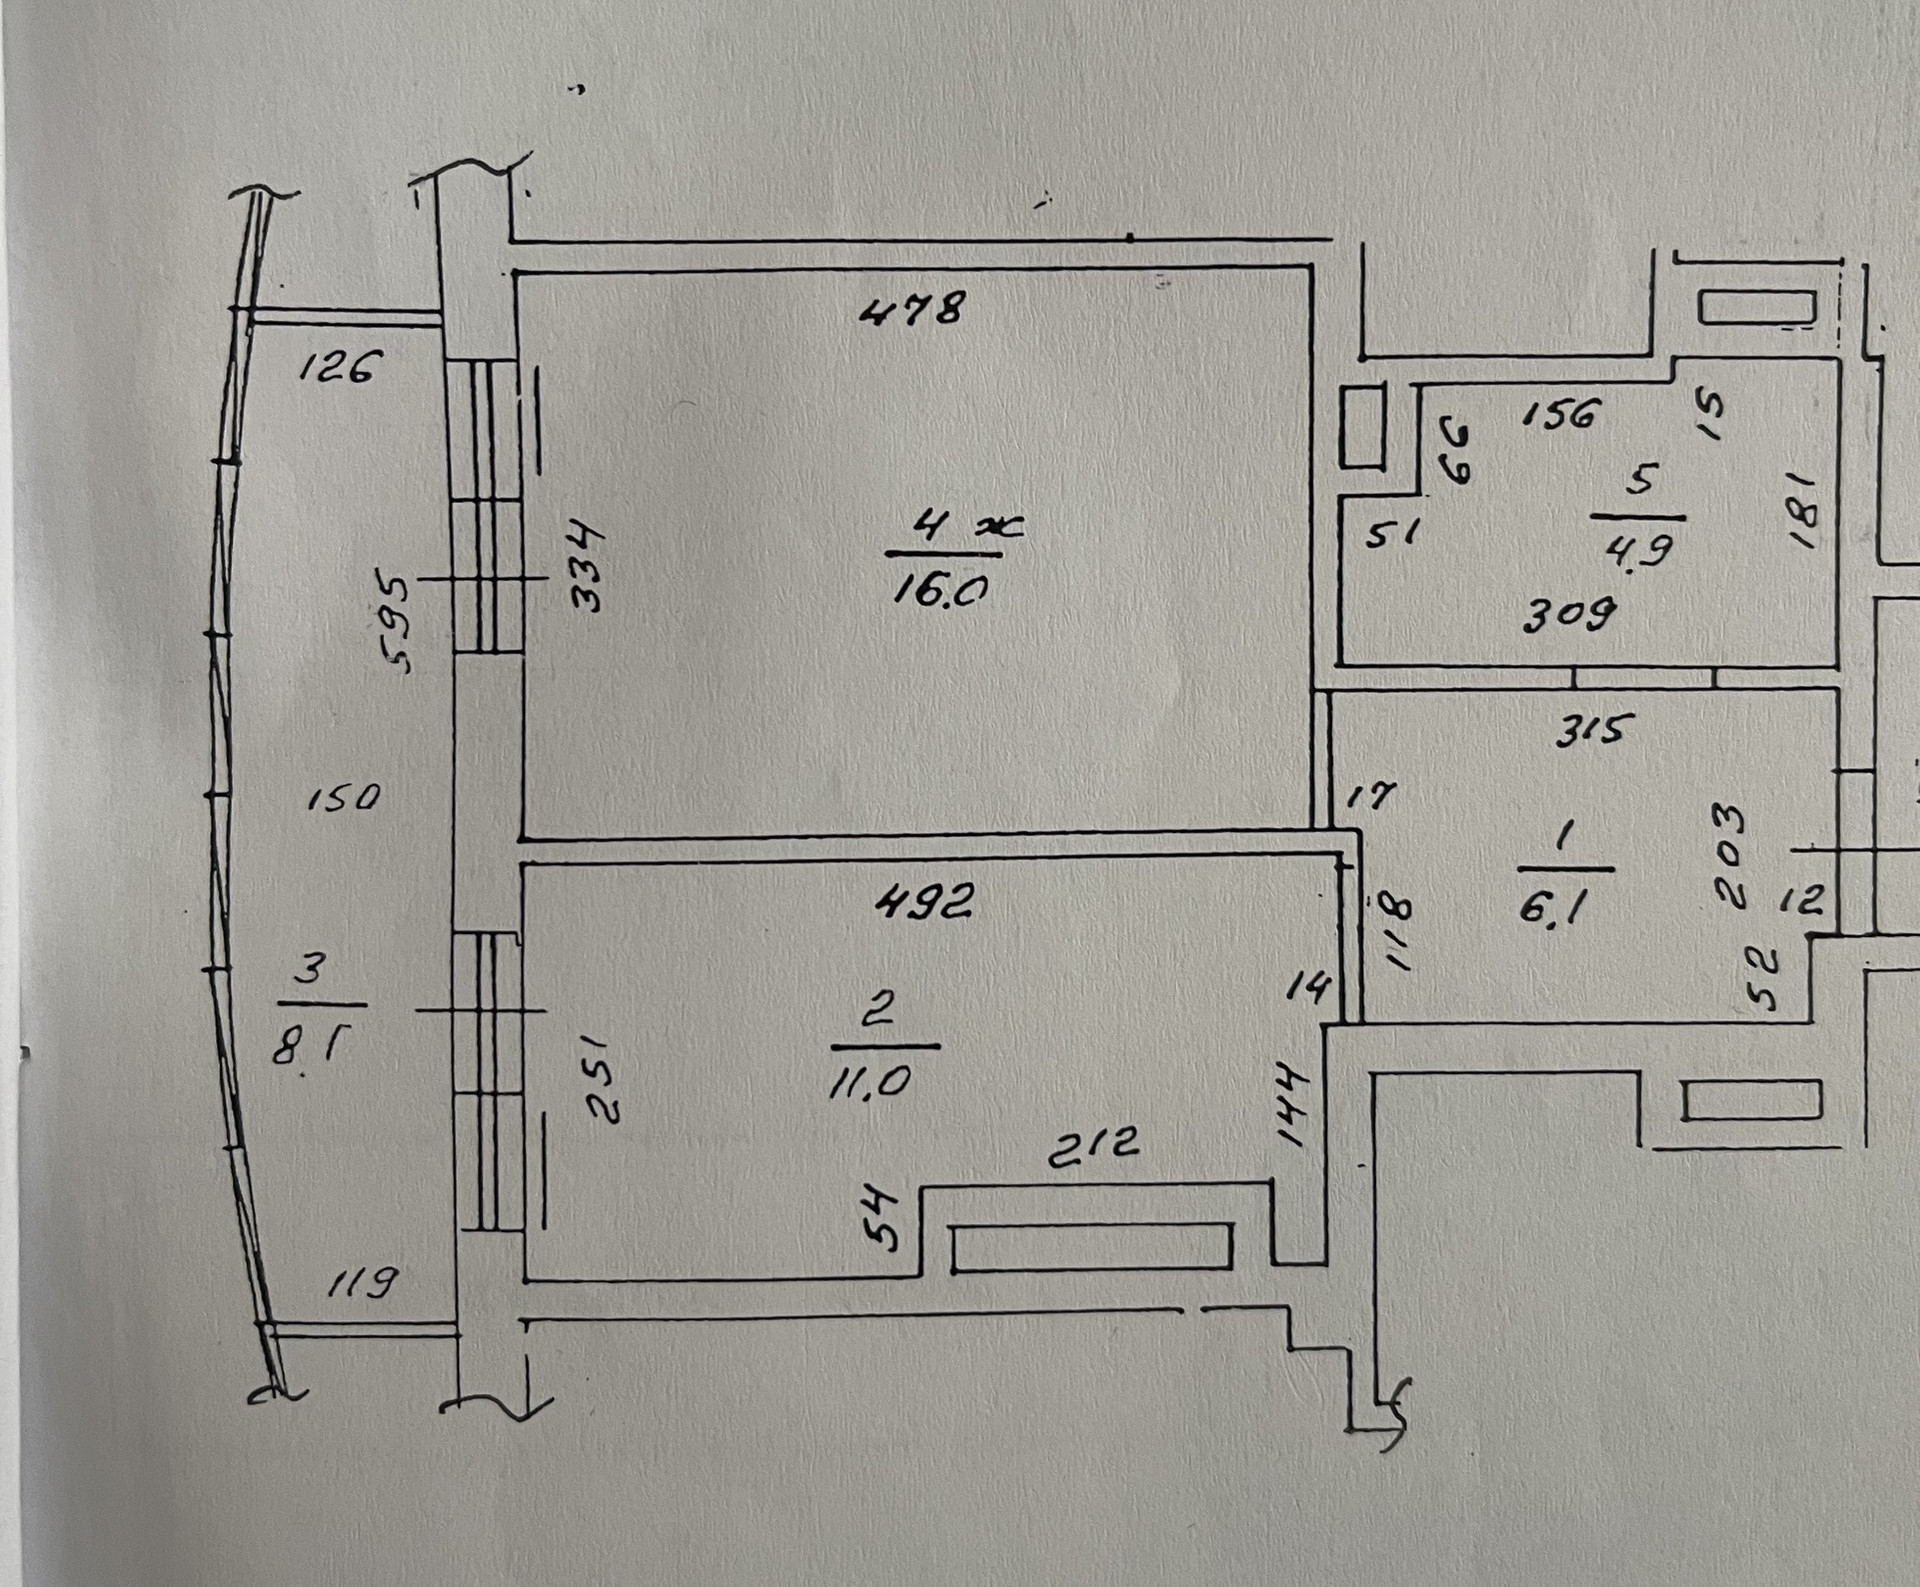 478
126
156
15
66
5
4.9
181
51
4 ж
16.0
334
595
309
315
17
150
1
6.1
203
12
118
492
3
8.1
2
11.0
14
52
251
144
212
54
119